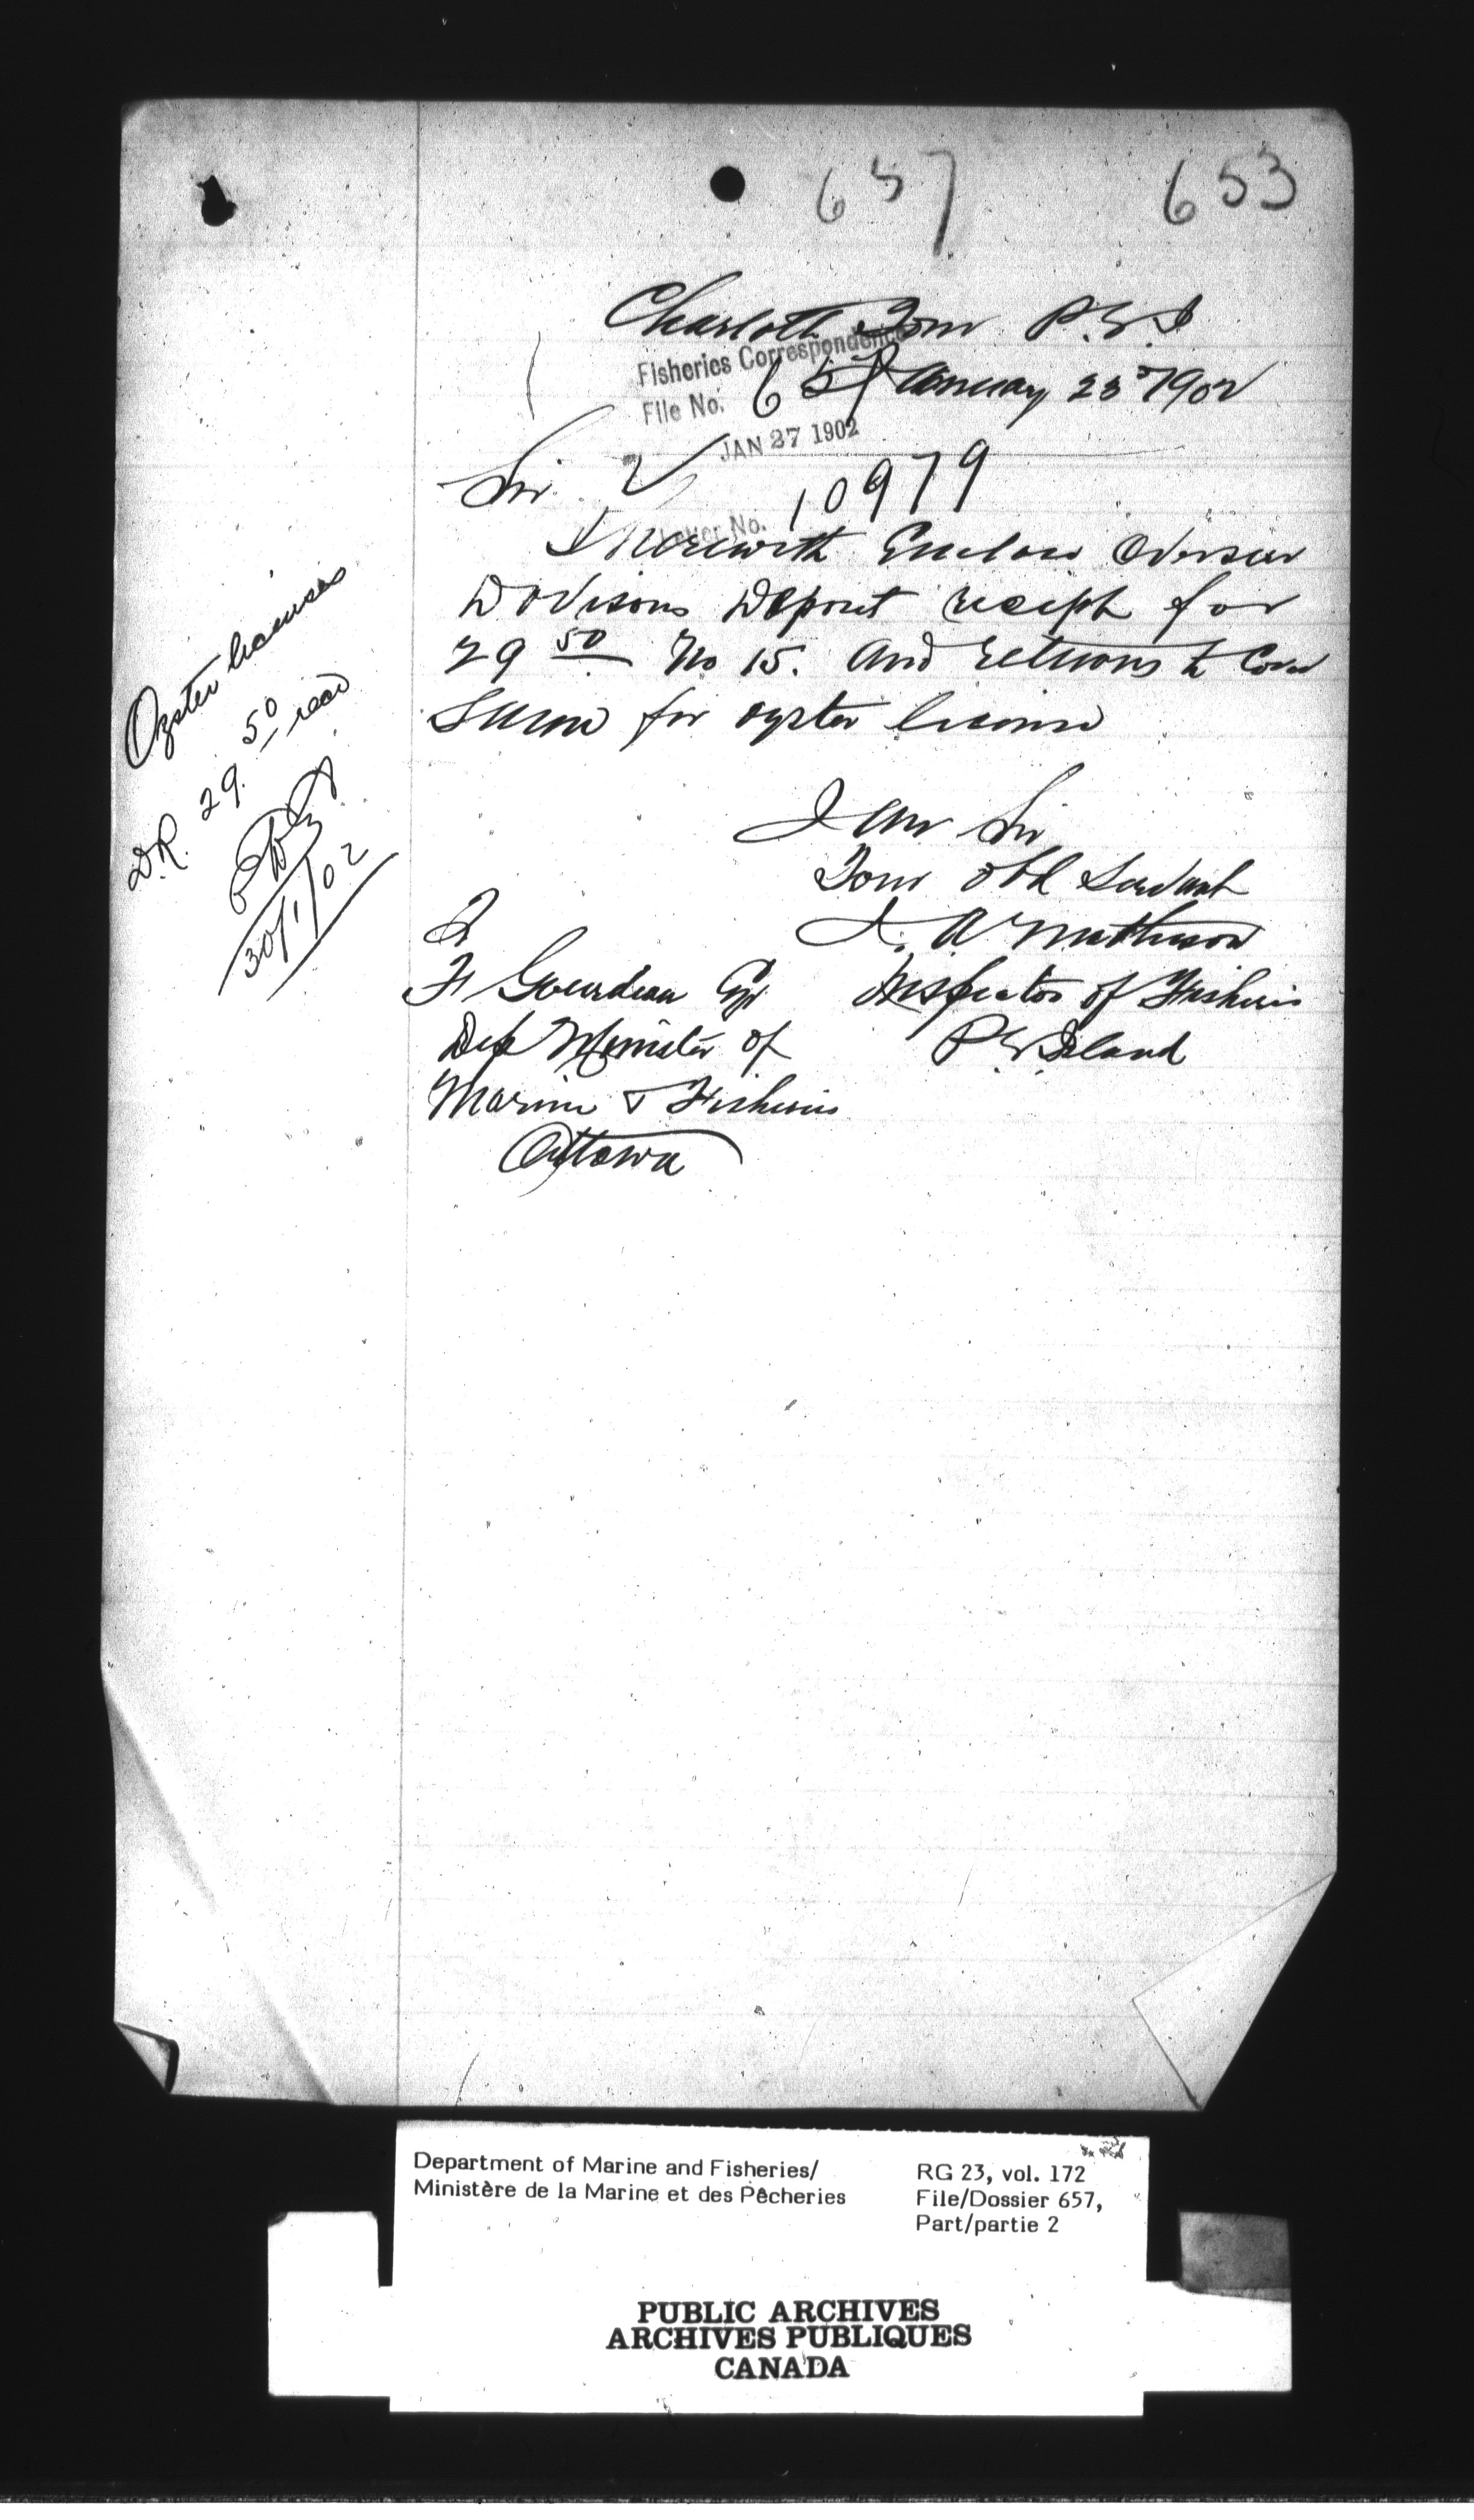 657 653
Charlotte Town P.E.I
Fisheries Correspondence
File No. 657 January 23rd 1902
JAN 27 1902
Sir
10979
Letter No.
I herewith Enclose Oversier
Davisons Deposit reciept for
29 50 No 15. and returns to Cover
Same for oyster license
I am Sir
Your obd Servant
J. A. Matheson
Inspector of Fisheries
P. E. Island
To
F Gourdeau Esqr
Dep Minister of
Marine & Fisheries
Ottawa
Oyster licenses
D.R. 29.50 recd
30/1/02
Department of Marine and Fisheries/
Ministère de la Marine et des Pêcheries
RG 23, vol. 172
File/Dossier 657,
Part/partie 2
PUBLIC ARCHIVES
ARCHIVES PUBLIQUES
CANADA